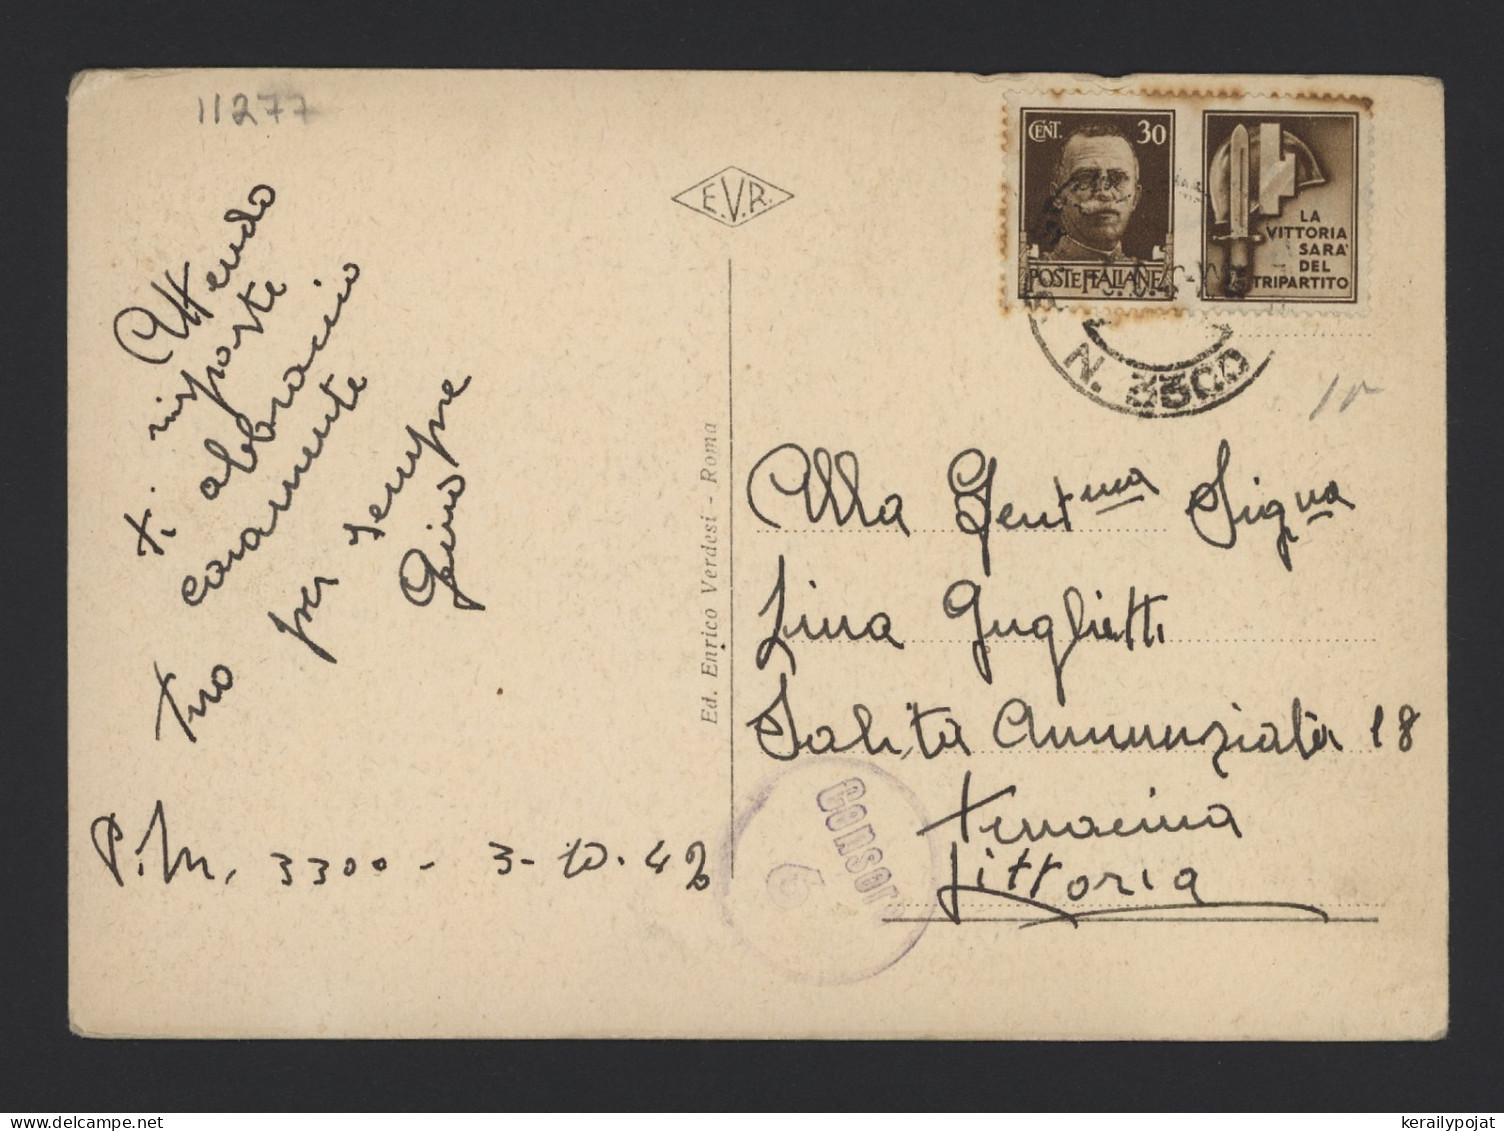 11277
Attendo
risposte
ti abbraccio
caramente
tuo per sempre
Gino
P.M. 3300 - 3-10-42
E.V.R.
Ed. Enrico Verdesi - Roma
CENT. 30
POSTE ITALIANE
LA
VITTORIA
SARA'
DEL
TRIPARTITO
N. 3300
Alla Gent.ma Sig.na
Lina Guglietti
Salita Annunziata 18
Terracina
Littoria
Censore
6
kerailypojat